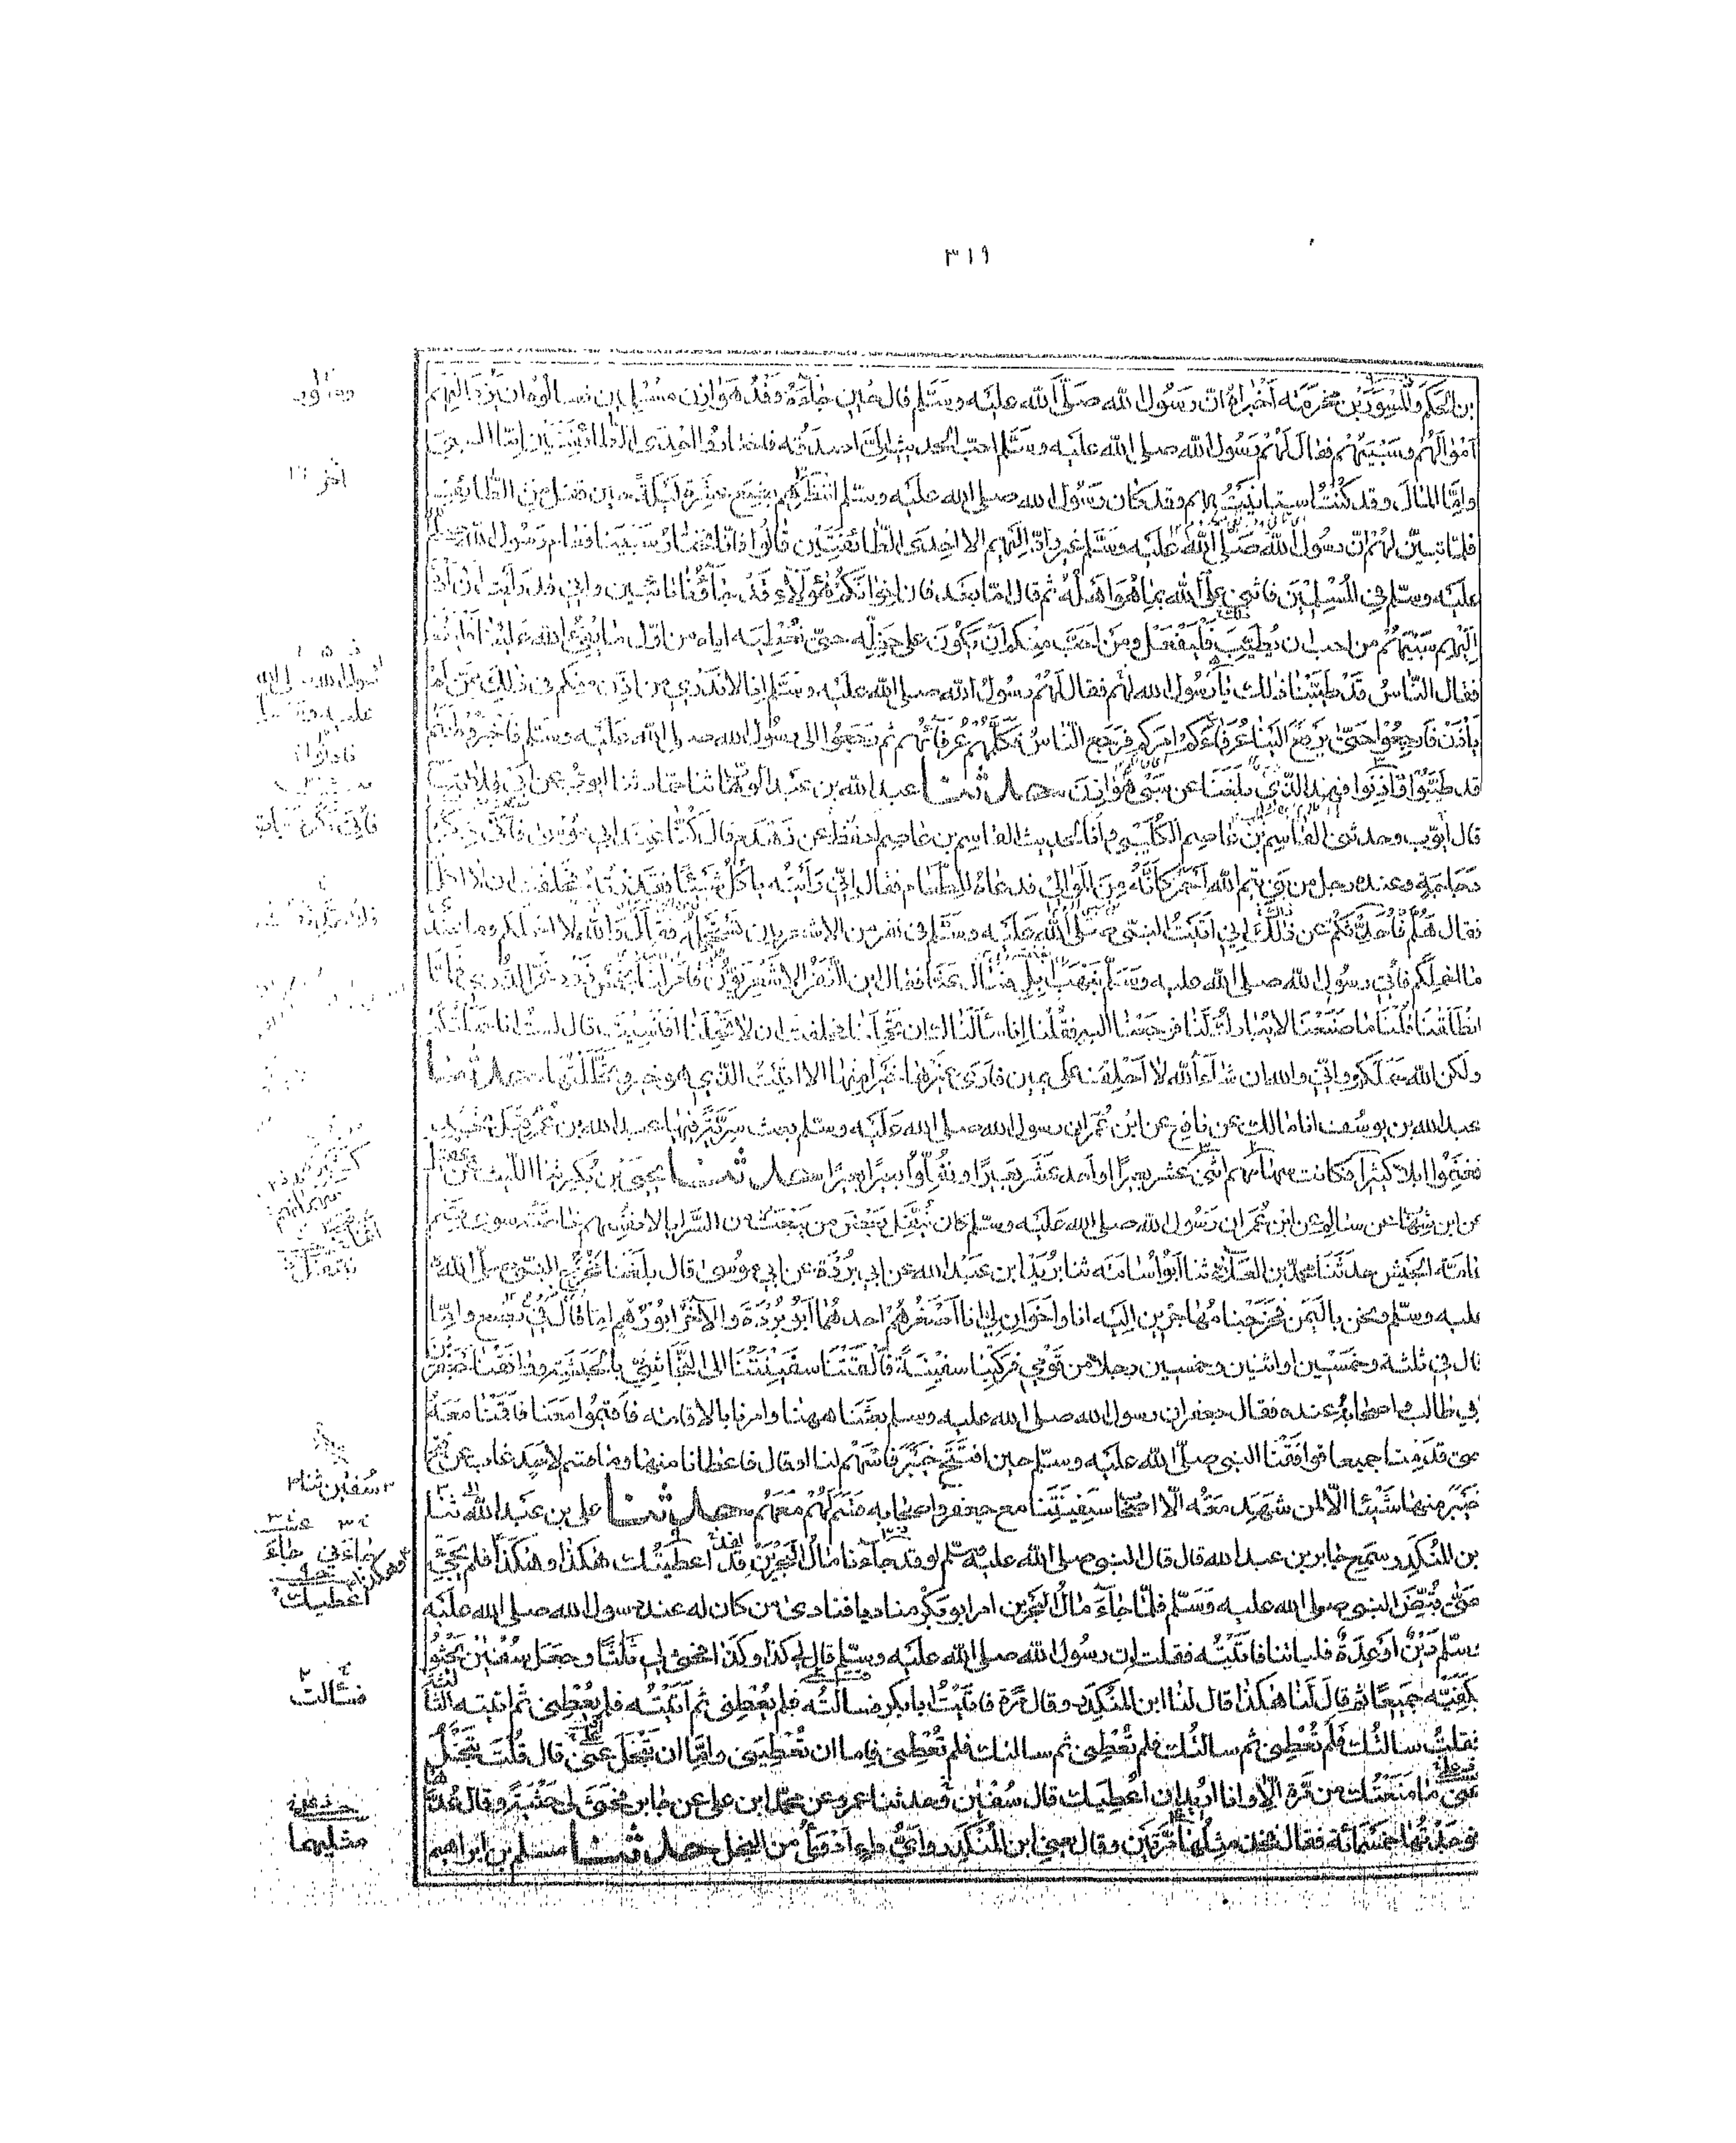 ٣١٩
بن الحكم والمسور بن مخرمة اخبراه ان رسول الله صلى الله عليه وسلم قال حين جاءه وفد هوازن مسلمين فسالوه ان يرد اليهم
اموالهم وسبيهم فقال لهم رسول الله صلى الله عليه وسلم احب الحديث الى اصدقه فاختاروا احدى الطائفتين اما السبي
واما المال وقد كنت استانيت بهم وقد كان رسول الله صلى الله عليه وسلم انتظرهم بضع عشرة ليلة حين قفل من الطائف
فلما تبين لهم ان رسول الله صلى الله عليه وسلم غير راد اليهم الا احدى الطائفتين قالوا فانا نختار سبينا فقام رسول الله صلى
عليه وسلم في المسلمين فاثنى على الله بما هو اهله ثم قال اما بعد فان اخوانكم هؤلاء قد جاؤنا تائبين واني قد رايت ان ارد
اليهم سبيهم من احب ان يطيب فليفعل ومن احب منكم ان يكون على حظه حتى نعطيه اياه من اول ما يفيء الله علينا فليفعل
فقال الناس قد طيبنا ذلك يا رسول الله لهم فقال لهم رسول الله صلى الله عليه وسلم انا لا ندري من اذن منكم في ذلك ممن لم
ياذن فارجعوا حتى يرفع الينا عرفاؤكم امركم فرجع الناس فكلمهم عرفاؤهم ثم رجعوا الى رسول الله صلى الله عليه وسلم فاخبروه انهم
قد طيبوا فاذنوا فهذا الذي بلغنا عن سبي هوازن حدثنا عبد الله بن عبد الوهاب ثنا حماد ثنا ايوب عن ابي قلابة
قال ايوب وحدثني القاسم بن عاصم الكليبي وانا لحديث القاسم بن عاصم احفظ عن زهدم قال كنا عند ابي موسى فاتى ذكر
دجاجة وعنده رجل من بني تيم الله احمر كانه من الموالي فدعاه للطعام فقال اني رايته ياكل شيئا فقذرته فحلفت ان لا اكل
فقال هلم فاحدثكم عن ذلك اني اتيت النبي صلى الله عليه وسلم في نفر من الاشعريين نستحمله فقال والله لا احملكم وما عندي
ما احملكم فاتي رسول الله صلى الله عليه وسلم بنهب ابل فسال عنا فقال اين النفر الاشعريون فامر لنا بخمس ذود غر الذرى فلما
انطلقنا قلنا ما صنعنا لا يبارك لنا فرجعنا اليه فقلنا انا سالناك ان تحملنا فحلفت ان لا تحملنا افنسيت قال لست انا حملتكم
ولكن الله حملكم واني والله ان شاء الله لا احلف على يمين فارى غيرها خيرا منها الا اتيت الذي هو خير وتحللتها حدثنا
عبد الله بن يوسف انا مالك عن نافع عن ابن عمر ان رسول الله صلى الله عليه وسلم بعث سرية فيها عبد الله بن عمر قبل نجد
فغنموا ابلا كثيرا فكانت سهامهم اثنى عشر بعيرا او احد عشر بعيرا ونفلوا بعيرا بعيرا حدثنا يحيى بن بكير ثنا الليث عن
عن ابن شهاب عن سالم عن ابن عمر ان رسول الله صلى الله عليه وسلم كان ينفل بعض من يبعث من السرايا لانفسهم خاصة سوى قسم
عامة الجيش حدثنا محمد بن العلاء ثنا ابو اسامة ثنا بريد ابن عبد الله عن ابي بردة عن ابي موسى قال بلغنا مخرج النبي صلى الله
عليه وسلم ونحن باليمن فخرجنا مهاجرين اليه انا واخوان لي انا اصغرهم احدهما ابو بردة والاخر ابو رهم اما قال في بضع واما
قال في ثلثة وخمسين او اثنين وخمسين رجلا من قومي فركبنا سفينة فالقتنا سفينتنا الى النجاشي بالحبشة ووافقنا جعفر
بي طالب واصحابه عنده فقال جعفر ان رسول الله صلى الله عليه وسلم بعثنا ههنا وامرنا بالاقامة فاقيموا معنا فاقمنا معه
حتى قدمنا جميعا فوافقنا النبي صلى الله عليه وسلم حين افتتح خيبر فاسهم لنا او قال فاعطانا منها وما قسم لاحد غاب عن فتح
خيبر منها شيئا الا لمن شهد معه الا اصحاب سفينتنا مع جعفر واصحابه قسم لهم معهم حدثنا علي بن عبد الله ثنا
بن المنكدر سمع جابر بن عبد الله قال قال النبي صلى الله عليه وسلم لو قد جاءنا مال البحرين لقد اعطيتك هكذا وهكذا فلم يجئ
حتى قبض النبي صلى الله عليه وسلم فلما جاء مال البحرين امر ابو بكر مناديا فنادى من كان له عند رسول الله صلى الله عليه
وسلم دين او عدة فلياتنا فاتيته فقلت ان رسول الله صلى الله عليه وسلم قال لي كذا وكذا فحثى لي ثلثا وجعل سفين يحثو
بكفيه جميعا ثم قال لنا هكذا قال لنا ابن المنكدر وقال مرة فاتيت ابا بكر فسالته فلم يعطني ثم اتيته فلم يعطني ثم اتيته الثالثة
فقلت سالتك فلم تعطني ثم سالتك فلم تعطني ثم سالتك فلم تعطني فاما ان تعطيني واما ان تبخل عني قال قلت تبخل
عني ما منعتك من مرة الا وانا اريد ان اعطيك قال سفين وحدثنا عمرو عن محمد ابن علي عن جابر فحثى لي حثية وقال عدها
فوجدتها خمسمائة فقال فخذ مثلها مرتين وقال يعني ابن المنكدر واي داء ادوى من البخل حدثنا مسلم بن ابراهيم
سفين ثنا
جاءني جاء
اعطيك
فسالت
مثليها